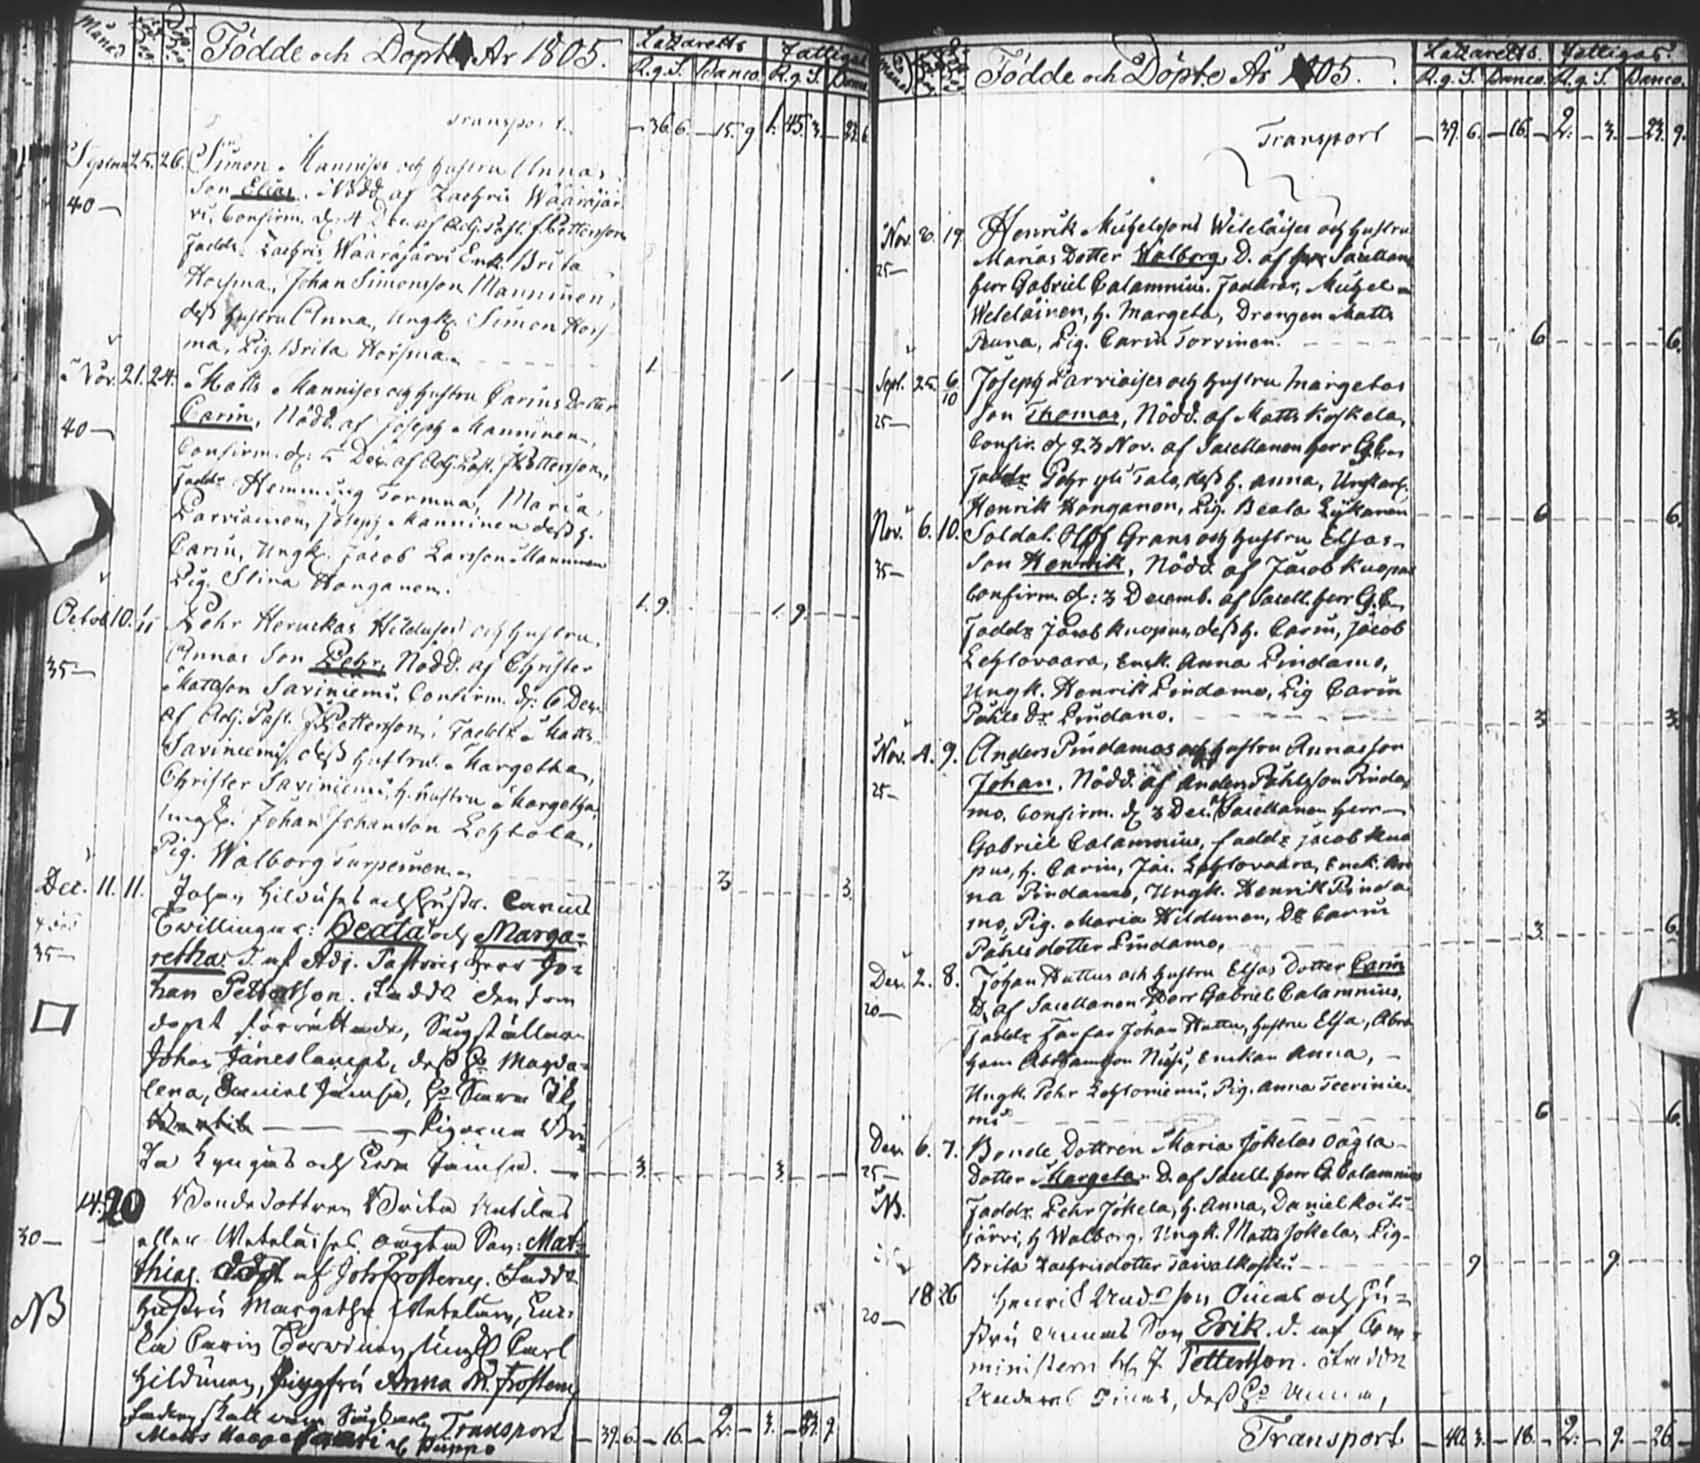 Månad
Födde och Döpte År 1805.
Lazaretts
Fattigas
R.g.S. Banco. R.g.S. Banco
Transport. — 36. 6. — 15. 9 1. 45. 3. — 22. 6
Septem 25. 26. Simon Mannises och hustru Annas
Son Elias. Nödd. af Zachris Wääräjär-
40—
vi. Confirm. d. 4 Dec. af Adj. Past. J. Pettersson
Faddr. Zachris Wääräjärvi Enk. Brita
Horsma, Johan Simonsson Manninen,
dess hustru Anna, Ungk. Simon Hors-
ma, Pig. Brita Horsma. 1 1
Nov. 21. 24. Matts Mannises och hustru Carins Dotter
Carin, Nödd. af Joseph Manninen,
40—
Confirm. d: 5 Dec. af Adj. Past. J. Pettersson,
Faddr. Hemming Tormua, Maria
Parviainen, Joseph Manninen dess h.
Carin, Ungk. Jacob Larsson Manninen
Pig. Stina Honganen. 1. 9. 1. 9.
Octob. 10. 11 Pehr Hernekas Hilduses och hustru
Annas Son Pehr, Nödd. af Christer
35—
Mattsson Saviniemi, Confirm. d: 6 Dec.
af Adj. Past. J. Pettersson, Faddr. Matts
Saviniemi, dess hustru Margetha,
Christer Saviniemi, h. hustru Margetha,
Ungk. Johan Johansson Lehtola,
Pig. Walborg Turpeinen. 3 3.
Dec. 11. 11. Johan Hilduses och Hustr. Carins
Twillingar: Beata och Marga-
35—
retha. D. af Adj. Pastoris Herr Jo-
han Petterson. Faddr den som
dopet förrättade,
Johan Jäneslampi, dess H: Magda-
lena, Daniel Jämsä, H:
Pigorna Bri-
ta Kyngäs och Ewa Jämsä. 3. 3.
14. 20 Bondedottren Brita
30—
eller Weteläises oägta Son: Mat-
thias. döpt af Joh. Frosterus. Faddr
NB
Hustru Margetha Wetelain, Enk-
Carin Torvinen, Ungk. Carl
Hilduinen, Jungfru Anna M. Frosterus
Transport — 39. 6. — 16. — 2. — 3. — 23. 9.
Månad
Födde och Döpte År 1805.
Lazaretts. Fattigas.
R.g.S. Banco. R.g.S. Banco.
Transport — 39. 6. — 16. — 2. — 3. — 23. 9.
Nov. 8. 19 Henrik Michelssons Weteläises och hustru
25—
Marias Dotter Walborg, D. af Sacellan
herr Gabriel Calamnius. Faddrar, Michel
Weteläinen, h. Margeta, Drengen Matts
Runa, Pig. Carin Torvinen. 6 6.
Sept. 25. 6/10 Joseph Parviaises och hustru Margetas
25—
Son Thomas, Nödd. af Matts Koskela,
Confir. d 23 Nov. af Sacellanen herr G. C.
Faddr. Pehr yli Talo, dess h. Anna, Ungkarl.
Henrik Honganen, Pig. Beata Lykänen 6 6.
Nov. 6. 10. Soldat. Olof Grans och hustru Elsas
35—
Son Henrik, Nödd. af Jacob Kuopus
Confirm. d: 3 Decemb. af Sacell. herr G. C.
Faddr Jacob Kuopus, dess h. Carin, Jacob
Lehtovaara, Enk. Anna Pindamo,
Ungk. Henrik Pindamo, Pig Carin
Påhls dr. Pindamo. 3 3.
Nov. 4. 9. Anders Pindamos och hustru Annas son
25—
Johan. Nödd. af Anders Påhlsson Pinda-
mo, Confirm. d 3 Dec. Sacellanen Herr
Gabriel Calamnius, faddr Jacob Kuo-
pus, h. Carin, Jac. Lehtovaara, Enk. An-
na Pindamo, Ungk. Henrik Pinda-
mo, Pig. Maria Hildunen, Dr Carin
Påhlsdotter Pindamo. 3. 6.
Dec. 2. 8. Johan Huttus och hustru Elsas Dotter Carin
20—
D. af Sacellanen Herr Gabriel Calamnius,
Faddr Farfar Johan Huttu, hustru Elsa, Abra-
ham Abrahamson, Enkan Anna,
Ungk. Pehr Lehtoniemi, Pig. Anna Teerinie-
mi 6 6.
Dec. 6. 7. Bonde Dottren Maria Jokelas oägta
25—
dotter Margeta. D. af Sacell. herr G. Calamnius
NB.
Faddr. Pehr Jokela, h. Anna, Daniel Koiti-
järvi, h Walborg. Ungk. Matts Jokela, Pig.
Brita Zachrisdotter Taivalkoski 9 9.
18 26 Henrik And:sson Oinas och Hu-
20—
stru Annas Son Erik. d. af Com-
ministern J. Petterson. Faddr
Anders Oinas, dess H: Anna,
Transport — 40. 3. — 18. — 2. — 9. — 26.